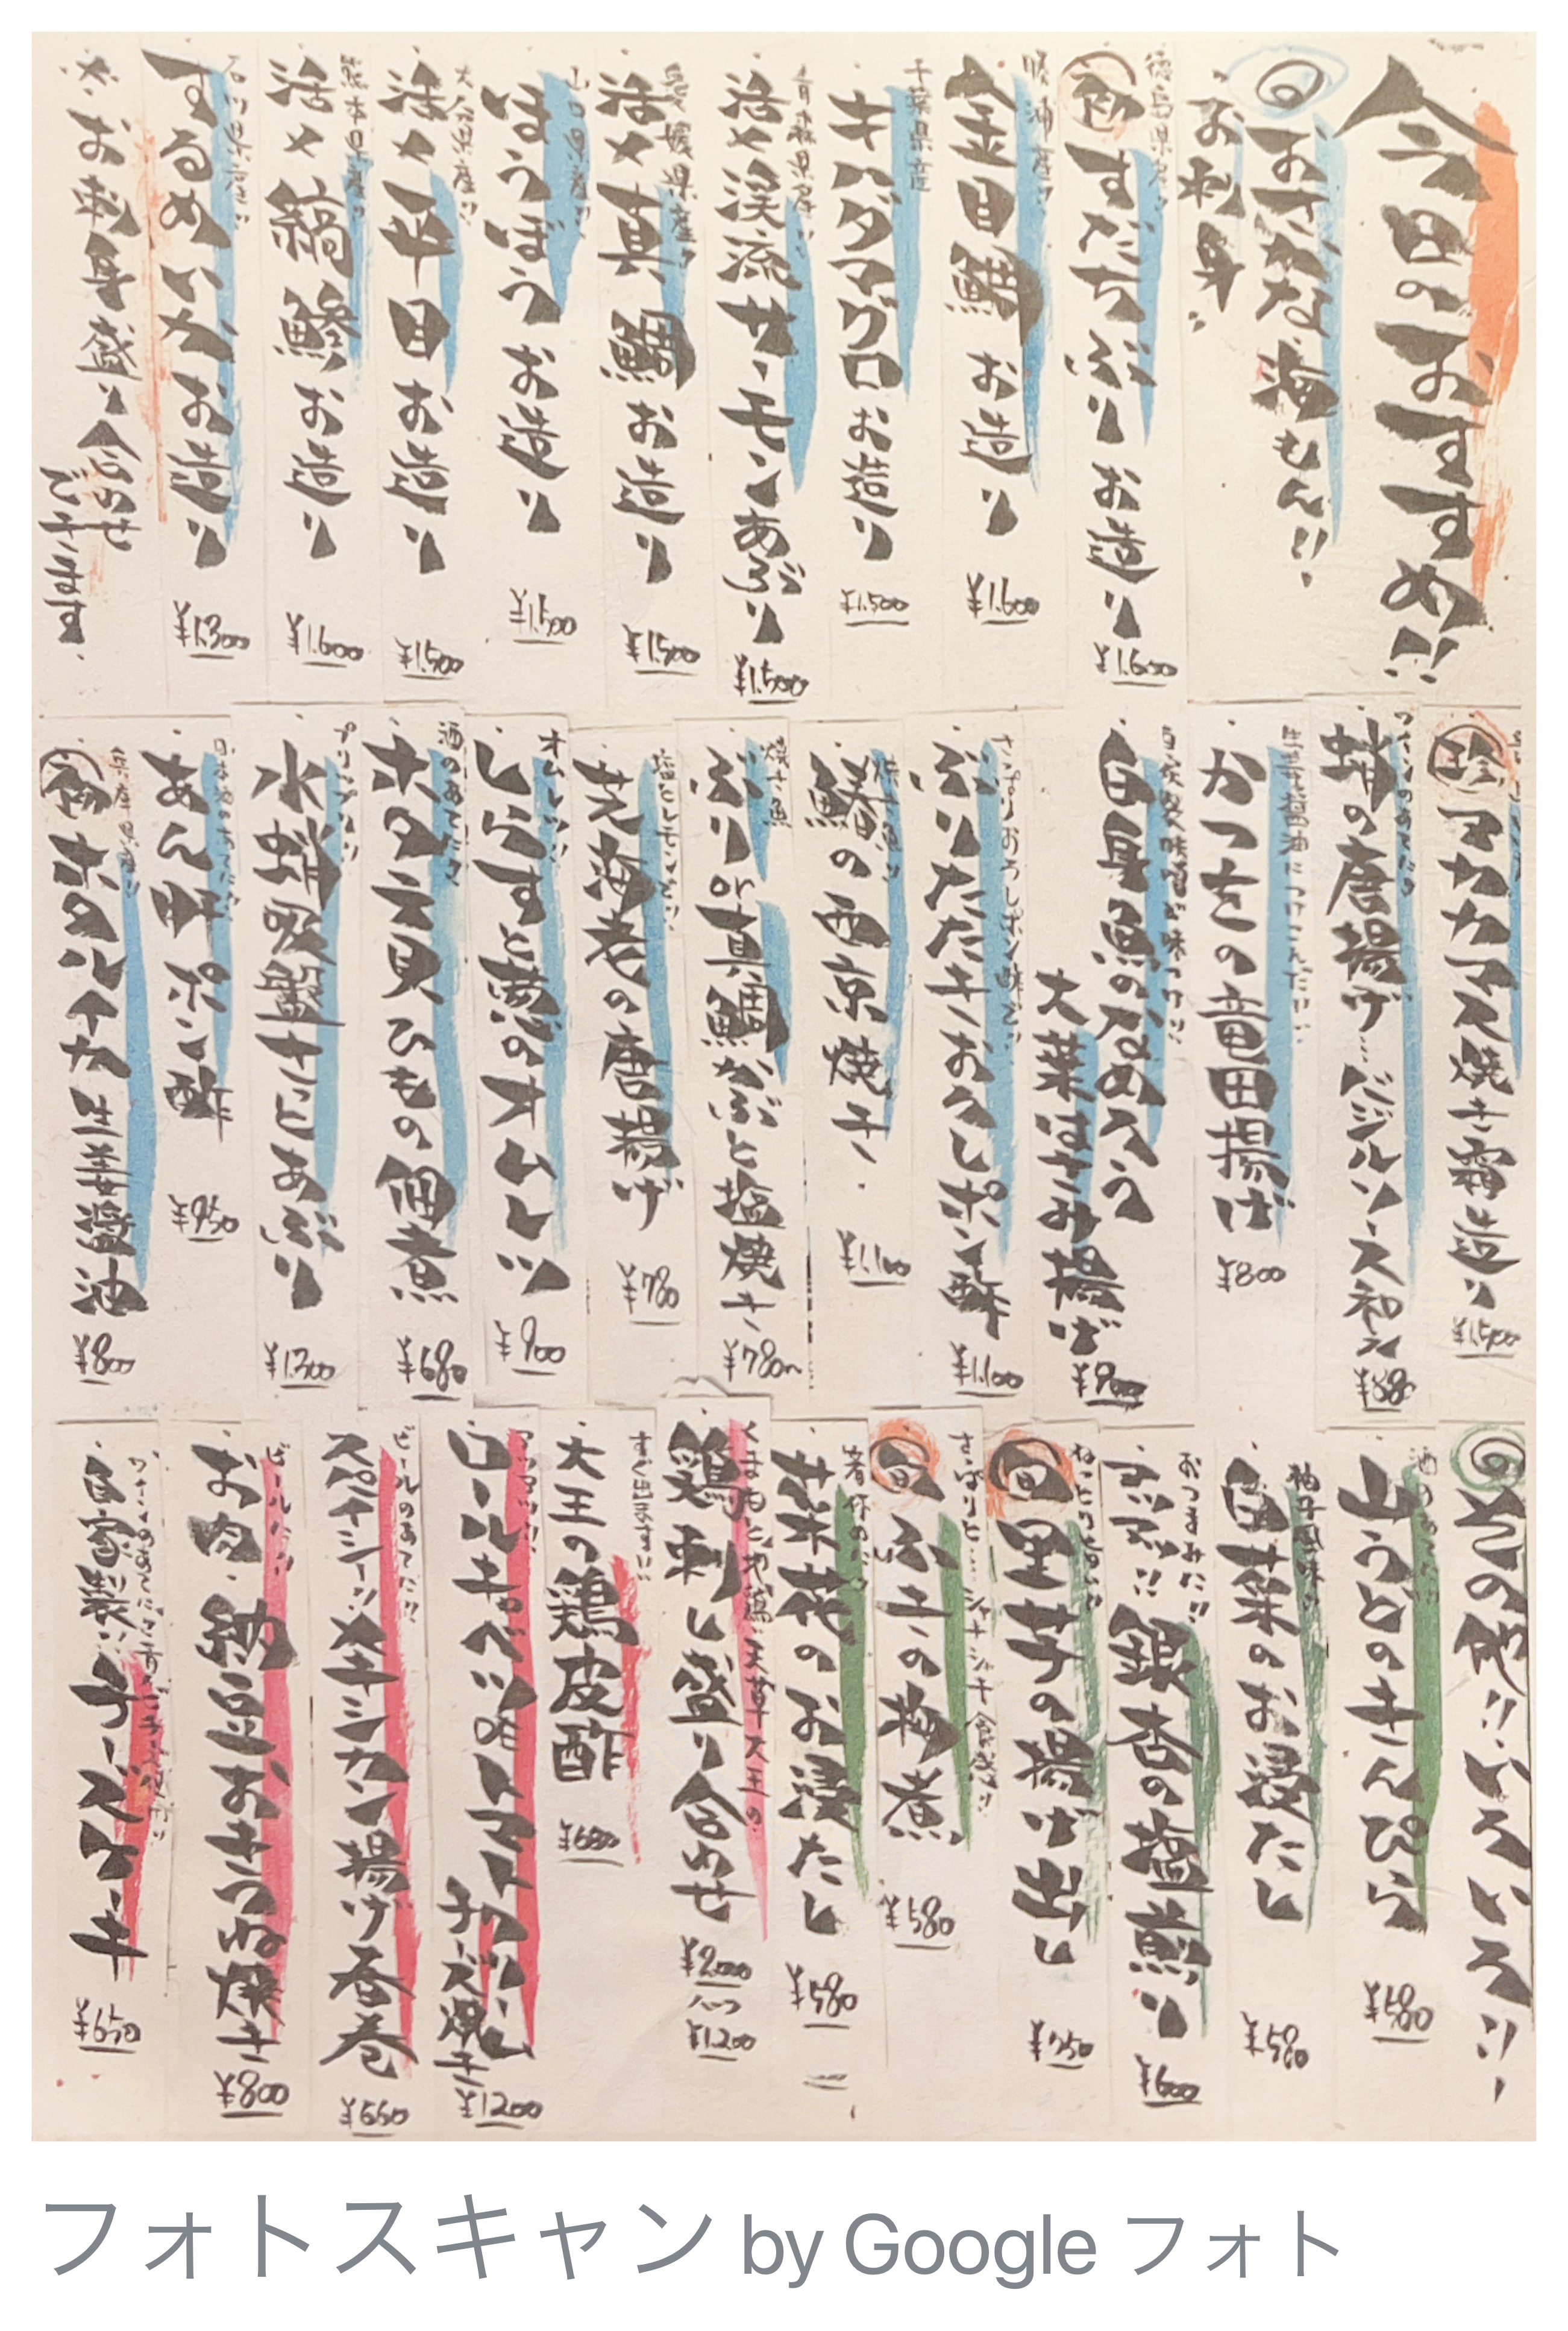 今日のおすすめ!!
おさかな海もん!!
お刺身
徳島県産
初 すだちぶり お造り ¥1.600
勝浦産!!
金目鯛 お造り ¥1.600
千葉県産
キハダマグロ お造り ¥1.500
青森県産!!
活〆渓流サーモンあぶり ¥1.500
愛媛県産!!
活〆真鯛 お造り ¥1.500
山口県産!!
ほうぼう お造り ¥1.500
大分県産!!
活〆平目 お造り ¥1.500
熊本県産!!
活〆縞鯵 お造り ¥1.600
石川県産!!
するめいか お造り ¥1.300
※お刺身盛り合わせ
できます。
珍 アカカマス焼き霜造り ¥1.500
ワインのあてだよ
蛸の唐揚げ…バジルソース和え
生姜醤油につけこんだ!!
かつをの竜田揚げ ¥800
自家製味噌が味つけ!!
白身魚のなめろう
大葉はさみ揚げ ¥900
さっぱりおろしポン酢で!!
ぶりたたきおろしポン酢 ¥1.100
焼き魚!!
鰆の西京焼き ¥1.100
焼き魚
ぶりor真鯛かぶと塩焼き ¥780〜
塩とレモンで!!
芝海老の唐揚げ ¥780
オムレツ!!
しらすと葱のオムレツ ¥900
酒のあてだよ
ホタテ貝ひもの佃煮 ¥680
プリップリ!!
水蛸吸盤さっとあぶり ¥1.300
日本酒のあてだよ
あん肝ポン酢 ¥950
兵庫県産!!
初 ホタルイカ生姜醤油 ¥800
その他!!いろいろ!!
酒のあてだ!!
山うどのきんぴら ¥580
柚子風味
白菜のお浸たし ¥580
おつまみだ!!
アツアツ!!銀杏の塩煎り ¥600
旬 里芋の揚げ出し
さっぱりと…シャキシャキ食感!!
旬 ふきの梅煮 ¥580
菜花のお浸たし ¥580
天草大王の
鶏刺し盛り合わせ ¥2.000
ハーフ ¥1.200
すぐ出ます!!
大王の鶏皮酢 ¥680
アツアツ!!
ロールキャベツorトマトクリーム
チーズ焼き ¥1200
ビールのあてだ!!
スパイシー!!メキシカン揚げ春巻 ¥660
ビールだ!!
お肉・納豆おきつね焼き ¥800
自家製!!チーズケーキ ¥650
フォトスキャン by Google フォト